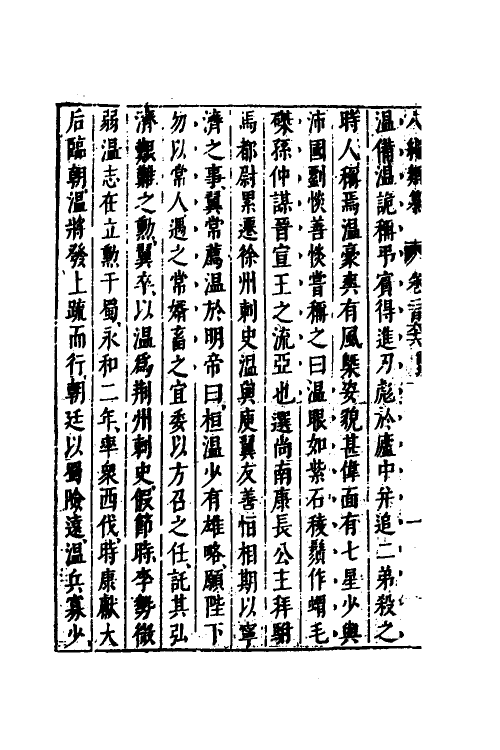 温備温詭稱弔賓得進刃彪於廬中并追二弟殺之
時人稱焉温豪爽有風槩姿貌甚偉面有七星少與
沛國劉惔善惔嘗稱之曰温眼如紫石稜鬚作蝟毛
磔孫仲謀晉宣王之流亞也選尚南康長公主拜駙
馬都尉累遷徐州刺史温與庾翼友善恒相期以寧
濟之事翼常薦温於明帝曰桓温少有雄略願陛下
勿以常人遇之常婿畜之宜委以方召之任託其弘
濟艱難之勲翼卒以温爲荆州刺史假節時李勢微
弱温志在立勲于蜀永和二年率衆西伐時康獻太
后臨朝温將發上疏而行朝廷以蜀險遠温兵寡少